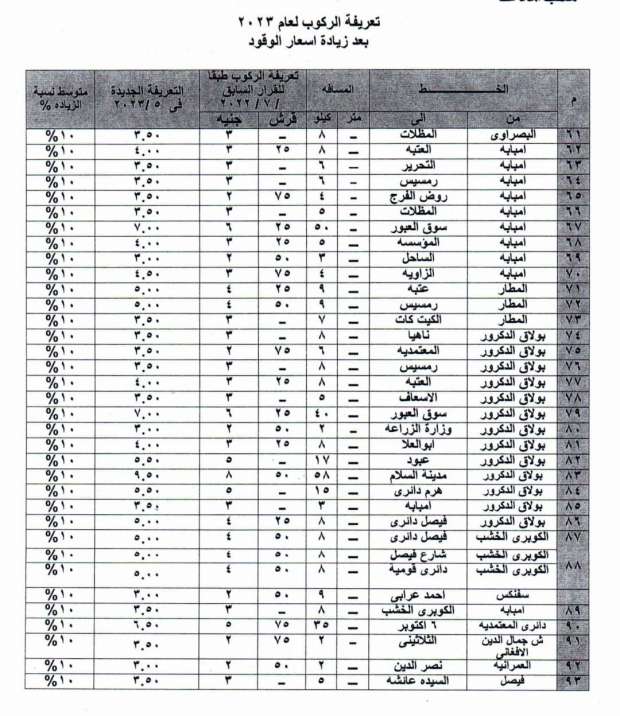 تعريفة الركوب لعام ٢٠٢٣
بعد زيادة اسعار الوقود
م الخـــط المسافه تعريفة الركوب طبقا للقرار السابق /٧/٢٠٢٢ التعريفة الجديدة فى ٢٠٢٣/٥ متوسط نسبة الزياده %
من الى متر كيلو قرش جنيه
٦١ البصراوى المظلات – ٨ – ٣ ٣.٥٠ ١٠%
٦٢ امبابه العتبه – ٨ ٢٥ ٣ ٤.٠٠ ١٠%
٦٣ امبابه التحرير – ٦ – ٣ ٣.٥٠ ١٠%
٦٤ امبابه رمسيس – ٦ – ٣ ٣.٥٠ ١٠%
٦٥ امبابه روض الفرج – ٤ ٧٥ ٢ ٣.٥٠ ١٠%
٦٦ امبابه المظلات – ٥ – ٣ ٣.٥٠ ١٠%
٦٧ امبابه سوق العبور – ٥٠ ٢٥ ٦ ٧.٠٠ ١٠%
٦٨ امبابه المؤسسه – ٥ ٢٥ ٣ ٤.٠٠ ١٠%
٦٩ امبابه الساحل – ٣ ٥٠ ٢ ٣.٠٠ ١٠%
٧٠ امبابه الزاويه – ٤ ٧٥ ٣ ٤.٥٠ ١٠%
٧١ المطار عتبه – ٩ ٢٥ ٤ ٥.٠٠ ١٠%
٧٢ المطار رمسيس – ٩ ٥٠ ٤ ٥.٠٠ ١٠%
٧٣ المطار الكيت كات – ٧ – ٣ ٣.٥٠ ١٠%
٧٤ بولاق الدكرور ناهيا – ٨ – ٣ ٣.٥٠ ١٠%
٧٥ بولاق الدكرور المعتمديه – ٦ ٧٥ ٢ ٣.٥٠ ١٠%
٧٦ بولاق الدكرور رمسيس – ٨ – ٣ ٣.٥٠ ١٠%
٧٧ بولاق الدكرور العتبه – ٨ ٢٥ ٣ ٤.٠٠ ١٠%
٧٨ بولاق الدكرور الاسعاف – ٥ – ٣ ٣.٥٠ ١٠%
٧٩ بولاق الدكرور سوق العبور – ٤٠ ٢٥ ٦ ٧.٠٠ ١٠%
٨٠ بولاق الدكرور وزارة الزراعه – ٢ ٥٠ ٢ ٣.٠٠ ١٠%
٨١ بولاق الدكرور ابوالعلا – ٨ ٢٥ ٣ ٤.٠٠ ١٠%
٨٢ بولاق الدكرور عبود – ١٧ – ٥ ٥.٥٠ ١٠%
٨٣ بولاق الدكرور مدينة السلام – ٥٨ ٥٠ ٨ ٩.٥٠ ١٠%
٨٤ بولاق الدكرور هرم دائرى – ١٥ – ٥ ٥.٥٠ ١٠%
٨٥ بولاق الدكرور امبابه – ٣ – ٣ ٣.٥٠ ١٠%
٨٦ بولاق الدكرور فيصل دائرى – ٨ ٢٥ ٤ ٥.٠٠ ١٠%
٨٧ الكوبرى الخشب فيصل دائرى – ٨ ٥٠ ٤ ٥.٠٠ ١٠%
الكوبرى الخشب شارع فيصل – ٨ ٥٠ ٤ ٥.٠٠ ١٠%
٨٨ الكوبرى الخشب دائرى قومية – ٨ ٥٠ ٤ ٥.٠٠ ١٠%
سفنكس احمد عرابى – ٩ ٥٠ ٢ ٣.٠٠ ١٠%
٨٩ امبابه الكوبرى الخشب – ٨ – ٣ ٣.٥٠ ١٠%
٩٠ دائرى المعتمديه ٦ اكتوبر – ٣٥ ٧٥ ٥ ٦.٥٠ ١٠%
٩١ ش جمال الدين الافغانى الثلاثينى – ٢ ٧٥ ٢ ٣.٥٠ ١٠%
٩٢ العمرانيه نصر الدين – ٢ ٥٠ ٢ ٣.٠٠ ١٠%
٩٣ فيصل السيده عائشه – ٥ – ٣ ٣.٥٠ ١٠%